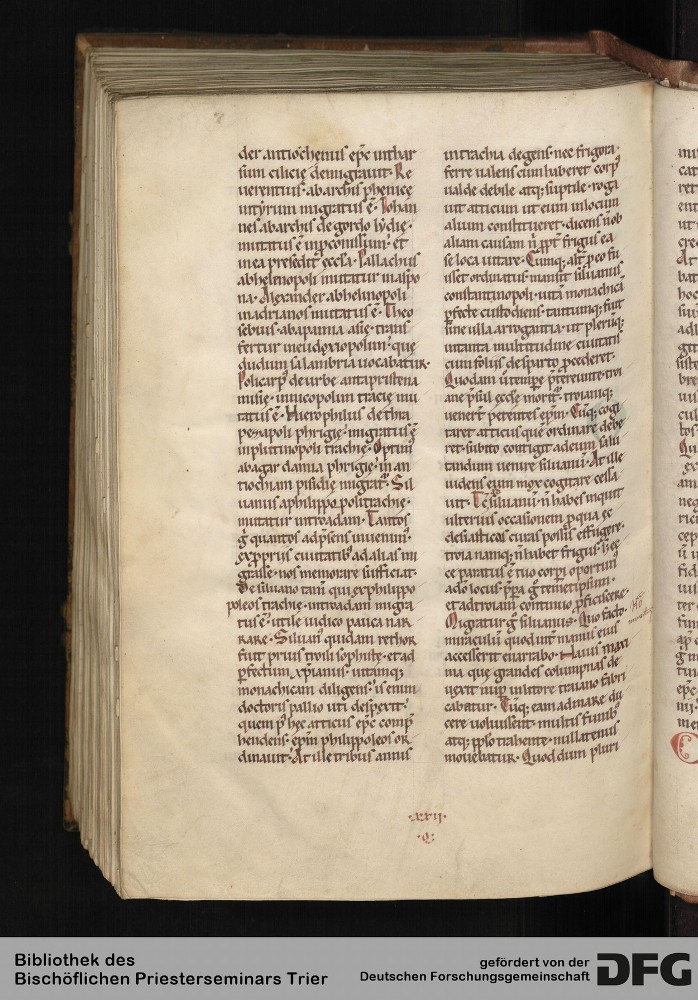 der antiochenus ep̄c in thar
sum cilicię demigrauit. Re
uerentius. ab archis phenicę
in tyrum migratus ē. Iohan
nes ab archis de gordo lydię.
mutatus ē in p̄connissum. et
in ea presedit ęccłę. Pallachius
ab helenopoli mutatur in aspo
na. Alexander ab helinopoli
in adrianos mutatus ē. Theo
sebius. ab apamia asię. trans
fertur in eudoxiopolim. quę
dudum salambria uocabatur.
Policarp᾽ de urbe antapristena
misię. in nicopolim tracię mu
tatus ē. Hierophilus de thra
pezapoli phrigię. migratus ē
in plutinopoli trachię. Optim᾽
ab agar damia phrigię. in an
tiochiam pisidię migrat᾽. Sil
uanus a philippopoli trachię.
mutatur in troadam. Tantos
g̊ quantos ad p̄sens inuenim᾽
ex p̱priis ciuitatib᾽ ad alias mi
grasse. nos memorare sufficiat.
De siluano tam̄ qui ex philippo
poleos trachię. in troadam migra
tus ē. utile iudico pauca nar
rare. Siluan᾽ quidam rethor
fuit prius troili sophistę. et ad
p̱fectum xp̄ianus. uitamq;
monachicam diligens. is enim
doctoris pallio uti despexit.
quem p᾽ hęc atticus ep̄c comp̄
hendens. ep̄m philippoleos or
dinauit. At ille tribus annis
in trachia degens. nec frigora
ferre ualens cum haberet corp᾽
ualde debile atq; suptile. roga
uit atticum ut eum in locum
alium constitueret. dicens n̄ ob
aliam causam n̄ p̱pt̄ frigus ea
se loca uitare. Cumq; alt᾽ p̱ eo fu
isset ordinatus. mansit siluanus
constantinopoli. uitā monachicā
p̱fecte custodiens. tantumq; fuit
sine ulla arrogantia. ut plerūq;
in tanta multitudine ciuitatis
cum foliis de sparto p̱cederet.
Quodam u᾽ temp̱e p̄tereunte. troi
anę p̄sul ęccłę morit᾽. troianiq;
uener̄t petentes ep̄m. Cūq; cogi
taret atticus quē ordinare debe
ret. subito contigit ad eum salu
tandum uenire siluanū. At ille
uidens eum mox cogitare cessa
uit. Tc̄ siluanū. n̄ habes inquit
ulterius occasionem p̱ qua ęc
clesiasticas curas possis effugere.
troia namq; n̄ habet frigus. h᾽ ec
ce paratus ē tuo corp̱i oportun᾽
ado locus. p̱pa g̊ temetipsum.
et ad troiam continuo p̱ficiscere.
Migratur g̊ siluanus. Quo facto.
miraculū quod int᾽ manus eius
accesserit enarrabo. Nauis maxi
ma quę grandes columpnas de
uexit nup᾽ in litore traiano fabri
cabatur. Cūq; eam ad mare du
cere uoluissent. multis funib᾽
atq; p̱p̱so trahente. nullatenus
mouebatur. Quod dum pluri
.xxii.
.Q.
Bibliothek des
Bischöflichen Priesterseminars Trier
gefördert von der
Deutschen Forschungsgemeinschaft
DFG